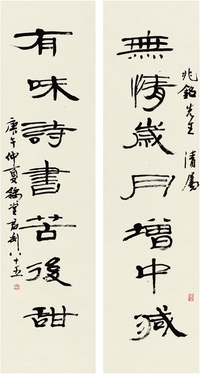 無情歲月增中減
兆銘先生 清屬
有味詩書苦後甜
庚午仲夏
八十五